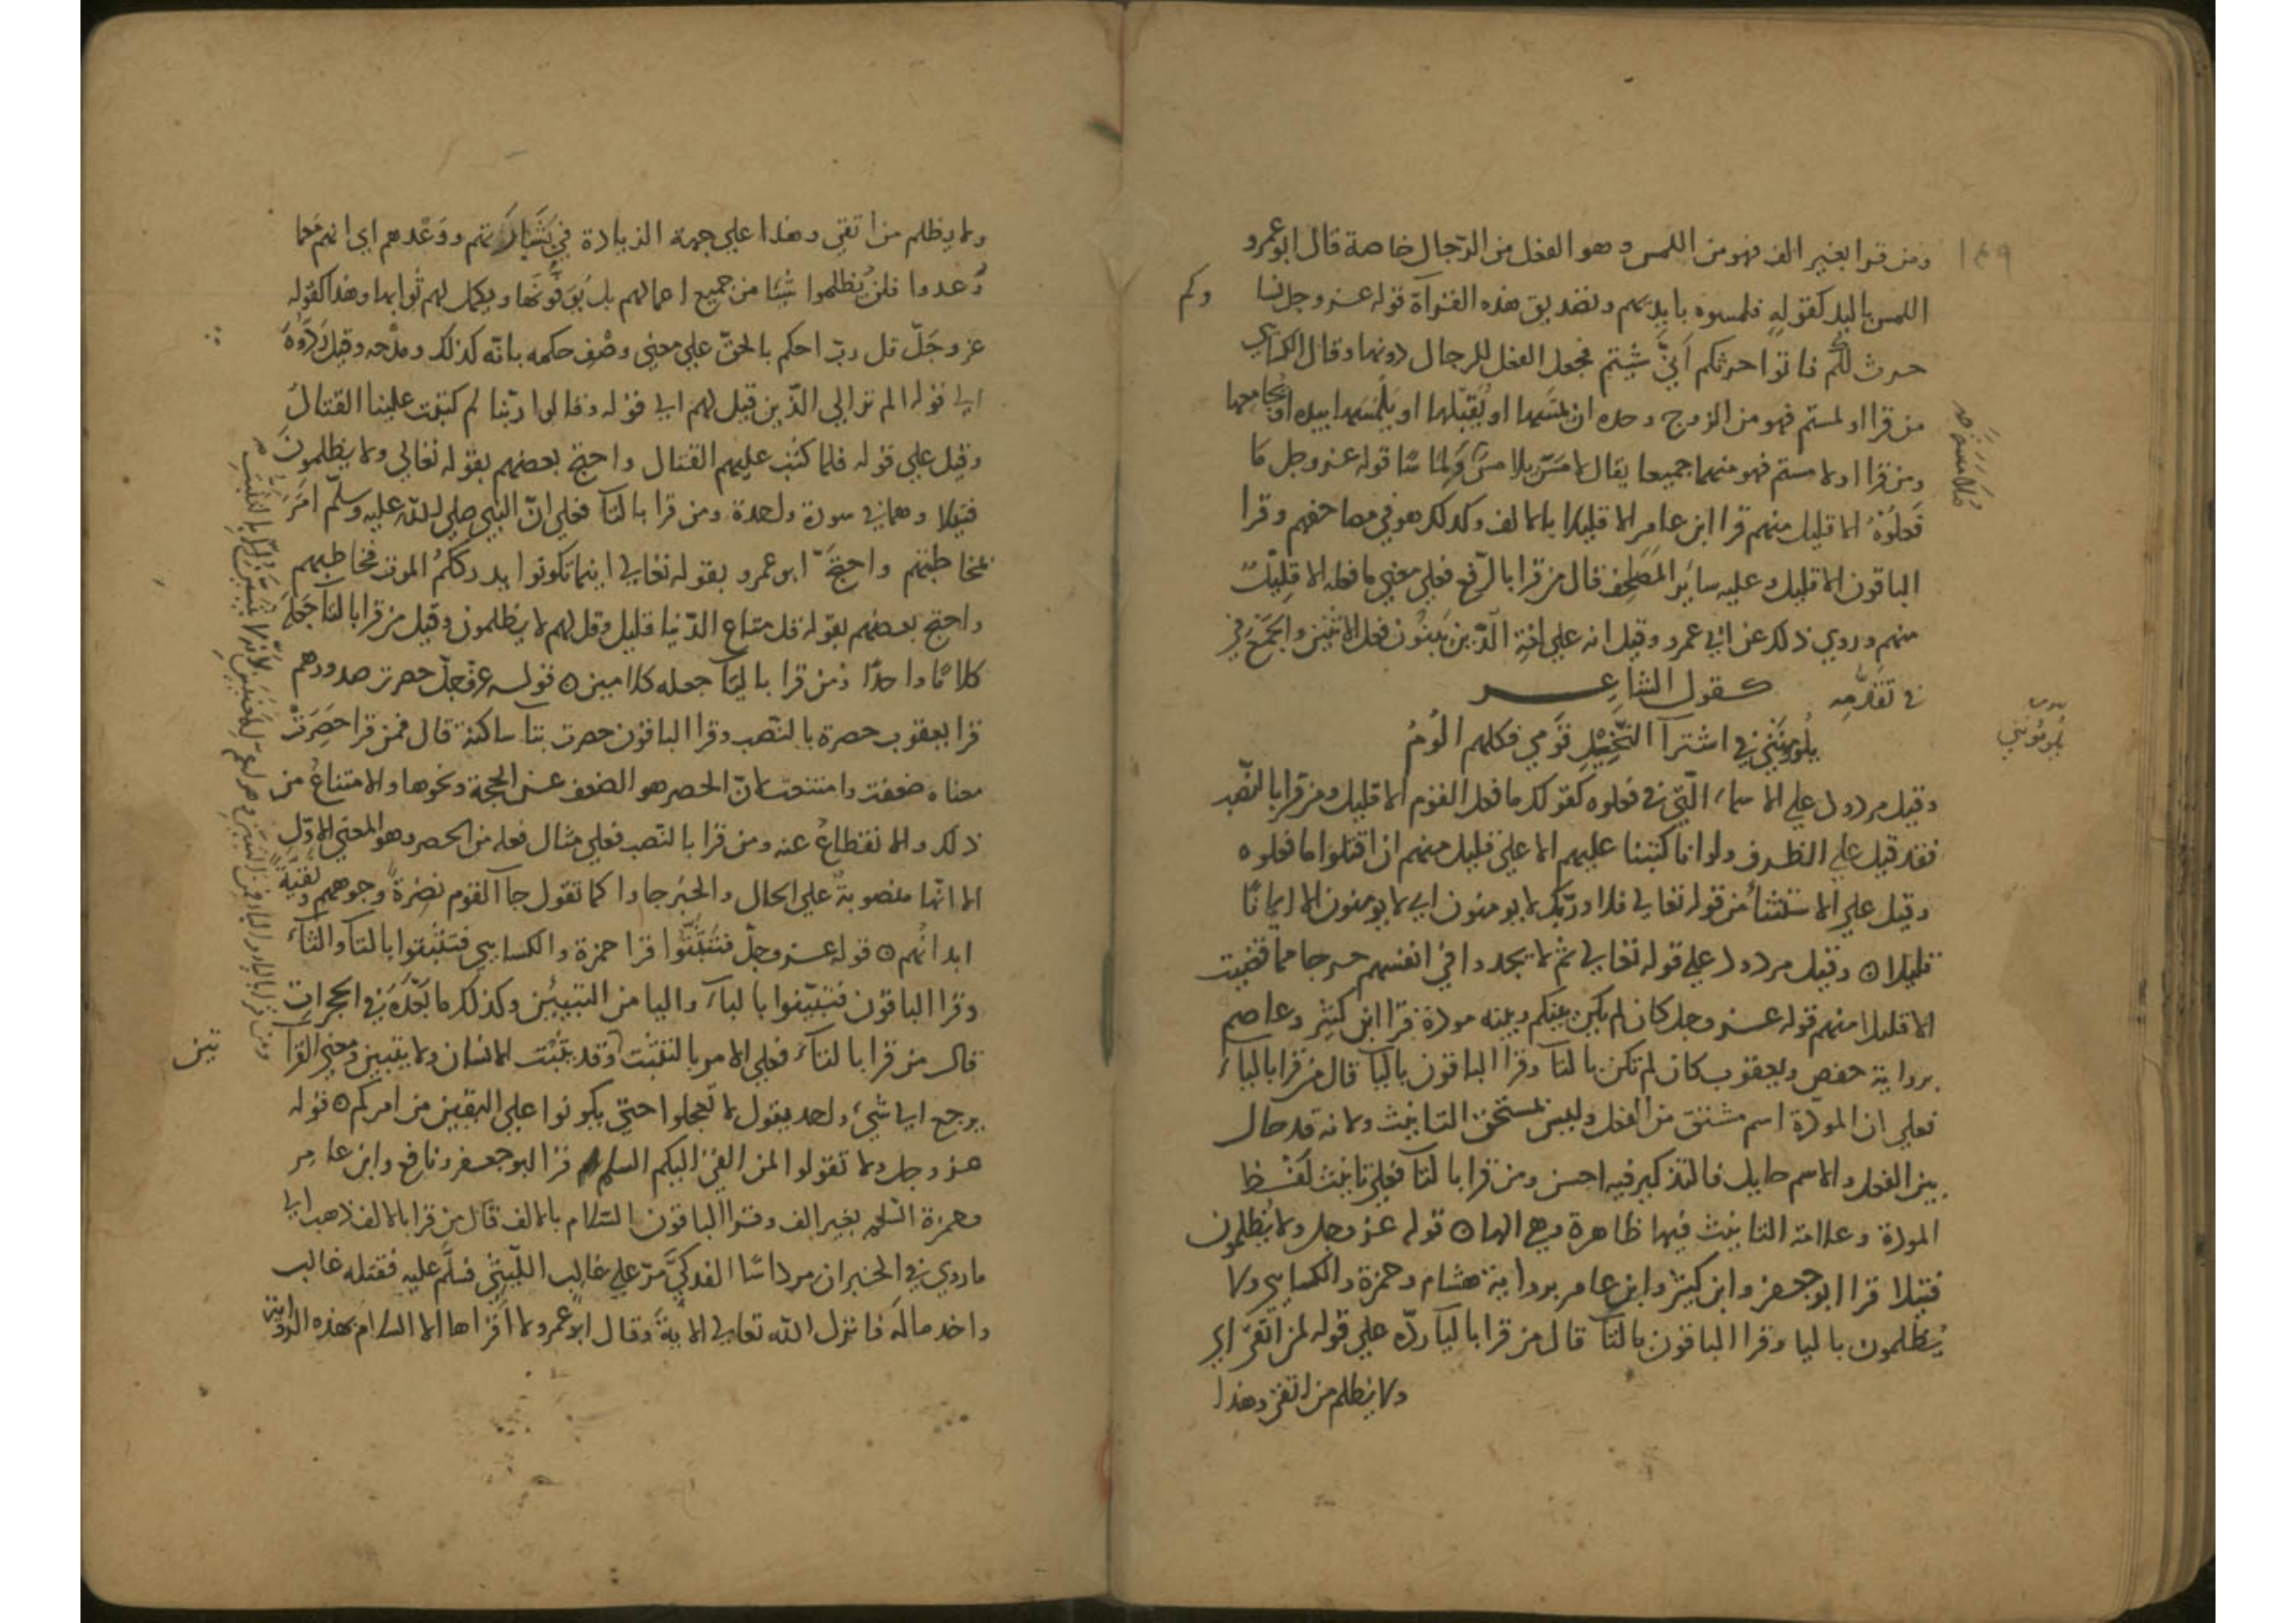 ١٤٩
ومن قرا بغير الف فهو من اللمس وهو الفعل من الرجال خاصة قال ابو عمرو
اللمس باليد كقوله فلمسوه بايديهم وتصديق هذه القراة قوله عز وجل نسا وكم
حرث لكم فاتوا حرثكم أنى شيتم فجعل الفعل للرجال دونها وقال الكساي
من قرا او لمستم فهو من الزوج وحده ان يمسها او يقبلها او يلمسها بيده او يجامعها
ومن قرا او لامستم فهو منهما جميعا يقال لامس يلامس قوله عز وجل ما
ملامسة
فَعلُوْهُ الا قليل منهم قرا ابن عامر الا قليلا بالالف وكذلك هو في مصاحفهم وقرا
الباقون الا قليل وعليه ساير المصاحف قال من قرا بالرفع فعلى معنى ما فعله الا قليل
منهم وروي ذلك عن ابي عمرو وقيل انه على لغة الذين يثنون فعل الاثنين والجمع في
في تقدمه كقول الشاعر
يلومونني في اشترآ النخيل قومي فكلهم الوم
يلومونني
وقيل مردود على الاسماء التي في فعلوه كقولك ما فعل القوم الا قليل ومن قرا بالنصب
فقد قيل على الظرف ولو انا كتبنا عليهم الا على قليل منهم ان اقتلوا ما فعلوه
وقيل على الاستثناء من قوله تعالى فلا وربك لا يومنون اي لا يومنون الا ايمانا
قليلا ٥ وقيل مردود على قوله تعالى ثم لا يجدوا في انفسهم حرجا مما قضيت
الا قليلا منهم قوله عز وجل كان لم يكن بينكم وبينه مودة قرا ابن كثير وعاصم
برواية حفص ويعقوب كان لم تكن بالتآ وقرا الباقون باليآ قال من قرا بالياء
فعلى ان المودة اسم مشتق من الفعل وليس بمستحق التانيث ولانه قد حال
بين الفعل والاسم حايل فالتذكير فيه احسن ومن قرا بالتآ فعلى تانيث لفظ
المودة وعلامة التانيث فيها ظاهرة وهي الها ٥ قوله عز وجل ولا يُظلمون
فتيلا قرا ابو جعفر وابن كثير وابن عامر برواية هشام وحمزة والكسايي ولا
يُظلمون باليا وقرا الباقون بالتآ قال من قرا باليآ ردّه على قوله لمن اتقى اي
ولا يظلم من اتقى وهذا
ولا يظلم من اتقى وهذا على جهة الزيادة في بشارتهم ووَعْدهم اي انهم مما
وُعدوا فلن يُظلموا شيئا من جميع اعمالهم بل يوَفَّونَها ويكمل لهم ثوابها وهذا كقوله
عز وجَلّ قل رب احكم بالحقّ على معنى وصْف حكمه بانّه كذلك ومدْحه وقيل ردّوه
الى قوله الم تر الى الذين قيل لهم الى قوله وقالوا ربّنا لم كتبت علينا القتال
وقيل على قوله فلما كتب عليهم القتال واحتج بعضهم بقوله تعالى ولا يظلمون
فتيلا وهما في سورة واحدة ومن قرا بالتآ فعلى انّ النبي صلى الله عليه وسلم امر
بمخاطبتهم واحتجّ ابو عمرو بقوله تعالى اينما تكونوا يدرككُم الموت فخاطبهم
واحتج بعضهم بقوله قل متاع الدنيا قليل وقل لهم لا يظلمون وقيل من قرا بالتا جعله
كلامًا واحدًا ومن قرا باليآ جعله كلامين ٥ قوله عز وجل حصرت صدورهم
قرا يعقوب حصرة بالنصب وقرا الباقون حصرت بتا ساكنة قال فمن قرا حَصِرَتْ
معناه ضعفت وامتنعت لانّ الحصر هو الضعف عن الحجة ونحوها والامتناعُ من
ذلك والانقطاعُ عنه ومن قرا بالنصب فعلى مثال فعلة من الحصر وهو المعنى الاوّل
الا انّها منصوبة على الحال والخبر جاوا كما تقول جآ القوم نضرةً وجوههم ونقيّة
ابدانُهم ٥ قوله عز وجلّ فتثبّتوا قرا حمزة والكسايي فتثبّتوا بالتآ والثآء
وقرا الباقون فتبيّنوا بالباء واليا من التبيين وكذلك ما بَعْدَهُ في الحجرات
قال من قرا بالتآء فعلى الامر بالتثبّت وقد يتثبّت الانسان ولا يتبين ومعنى القرآ تين
يرجع الى شيء واحد يقول لا تعجلوا حتى يكونوا على اليقين من امركم ٥ قوله
عز وجل ولا تقولوا لمن القى اليكم السلم قرا ابو جعفر ونافع وابن عامر
وحمزة السّلم بغير الف وقرا الباقون السّلام بالالف قال من قرا بالالف ذهب الى
ما روي في الخبر ان مرداسًا الفدكيَّ مرّ على غالب الليثي فسلَّم عليه فقتله غالب
واخذ مالَه فانزل الله تعالى الاية وقال ابو عمرو لا اقراها الا السلام بهذه الرواية